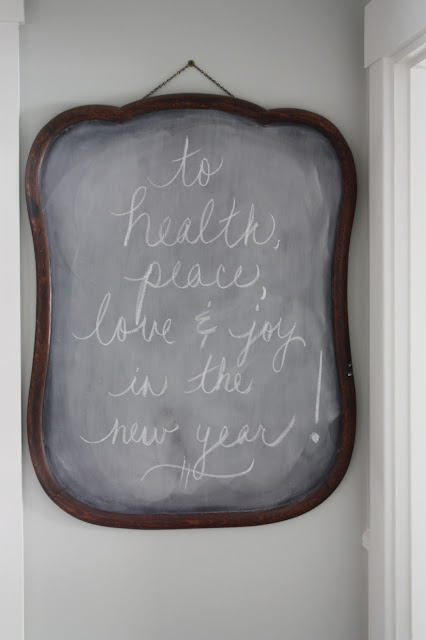 to
health,
peace,
love & joy
in the
new year!